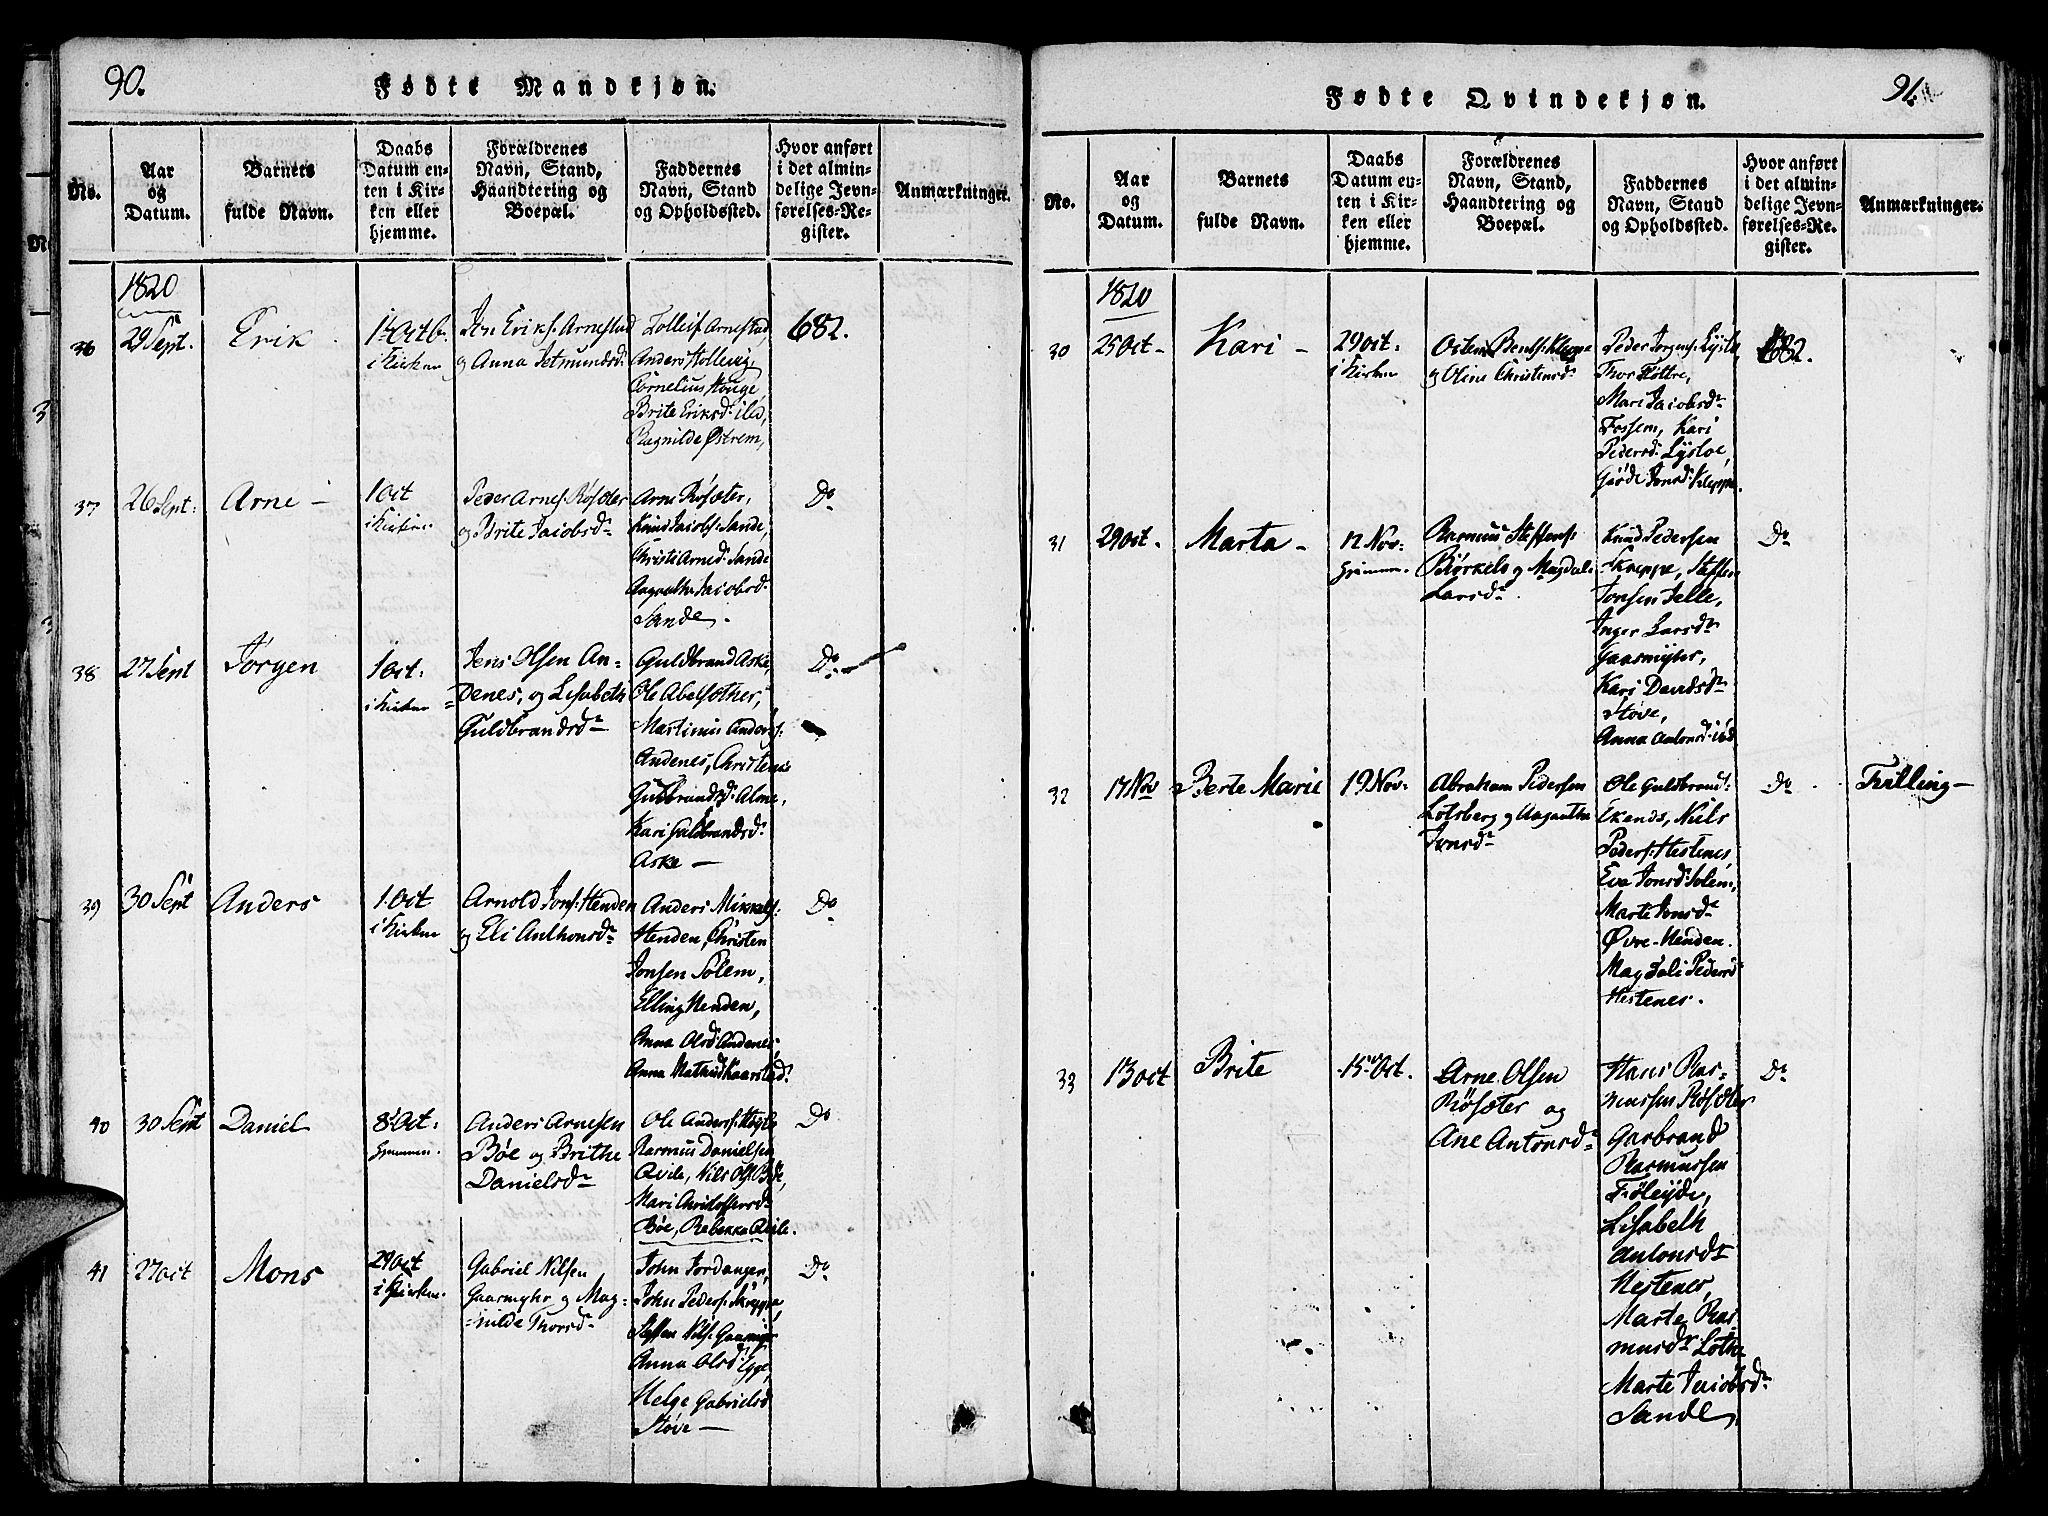 90.
Fødte Mandkjøn.
No.
Aar
og
Datum.
Barnets
fulde Navn.
Daabs
Datum en-
ten i Kir-
ken eller
hjemme.
Forældrenes
Navn, Stand,
Haandtering og
Boepæl.
Faddernes
Navn, Stand
og Opholdssted.
Hvor anført
i det almin-
delige Jevn-
førelses-Re-
gister.
Anmærkninger.
1820
36
29 Sept.
Erik
1 Octb.
i Kirken
Jon Eriks. Arnestad
og Anna Jetmundsd.
Tolleif Arnestad,
Anders Hollevig,
Cornelius Houge,
Brite Eriksd. ibd,
Ragnilde Østrem,
682.
37
26 Sept.
Arne -
1 Oct
i Kirken
Peder Arnes. Røsæter
og Brite Jacobsd.
Arne Røsæter,
Knud Jacobs. Sande,
Christi Arnesd. Sande
Aagoathe Jacobsd.
Sande.
Do
38
27 Sept
Jørgen
1 Oct.
i Kirken
Jens Olsen An-
denes, og Lisabeth
Guldbrandsd.
Guldbrand Aske,
Ole Abelsæther,
Martinus Anders.
Andenes, Christense
Guldbrandsd. Alme,
Kari Guldbrandsd.
Aske -
Do
39
30 Sept
Anders
1. Oct
i Kirken
Arnold Jons. Henden
og Eli Anthonsd.
Anders Mikkels.
Henden, Christen
Jonsen Solem,
Elling Henden,
Anna Olsd. Andenes
Anna Matsd. Kaarstad.
Do
40
30 Sept
Daniel
8 Oct.
hjemmen.
Anders Arnesen
Bøe og Brithe
Danielsd.
Ole Anders.
Rasmus Danielsen
Qvile, Nils Ols. Bøe,
Mari Christoffersd.
Bøe, Rebekka Qvile.
Do
41
27 Oct
Mons
29 Oct
i Kirken.
Gabriel Nilsen
Gaasmyhr og Mag-
-hilde Thorsd.
John Jordanger,
John Peders. Skreppa,
Steffen Nils. Gaasmyr
Anna Olsd. Egge,
Helge Gabrielsd
Støve -
Do
91.
Fødte Qvindekjøn.
No.
Aar
og
Datum.
Barnets
fulde Navn.
Daabs
Datum en-
ten i Kir-
ken eller
hjemme.
Forældrenes
Navn, Stand,
Haandtering og
Boepæl.
Faddernes
Navn, Stand
og Opholdssted.
Hvor anført
i det almin-
delige Jevn-
førelses-Re-
gister.
Anmærkninger.
1820
30
25 Oct -
Kari -
29 Oct.
i Kirken
Osten Bents. Kleppe
og Oline Christensd.
Peder Jorgens. Lyslo,
Thor Fløttre,
Mari Jacobsd.
Fossem, Kari
Pedersd. Lysloe,
Giøde Jonsd. Kleppe.
682.
31
29 Oct.
Marta -
12 Nov.
hjemmen.
Rasmus Steffens.
Børkels og Magdal.
Larsd.
Knud Pedersen
Skreppe, Steffen
Jonsen Jelle,
Inger Larsd.
Gaasmyhr,
Kari Davidsd.
Støve,
Anna Antonsd. ibd
Do
32
17 Nov
Berte Marie
19 Nov.
Abraham Pedersen
Lotsberg og Aagaathe
Jonsd.
Ole Guldbrand.
Ekends, Niels
Peders. Hestenes,
Eva Jonsd. Solem,
Marte Jonsd.
Øvre-Henden.
Magdali Pedersd.
Hestenes.
Do
Tvilling -
33
13 Oct
Brite
15 Oct.
Arne Olsen
Røsæter og
Ane Antonsd.
Hans Ras-
mussen Røsæter
Garbrand
Rasmussen
Føleyde,
Lisabeth
Antonsd.
Hestenes,
Marte Ras
musd. Lothe
Marte Jacobsd.
Sande,
Do